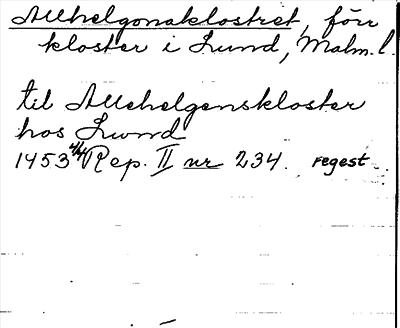 Allhelgonaklostret, förr
kloster i Lund, Malm. l.
til Allehelgenskloster
hos Lund
1453 4/4 Rep. II nr 234. regest